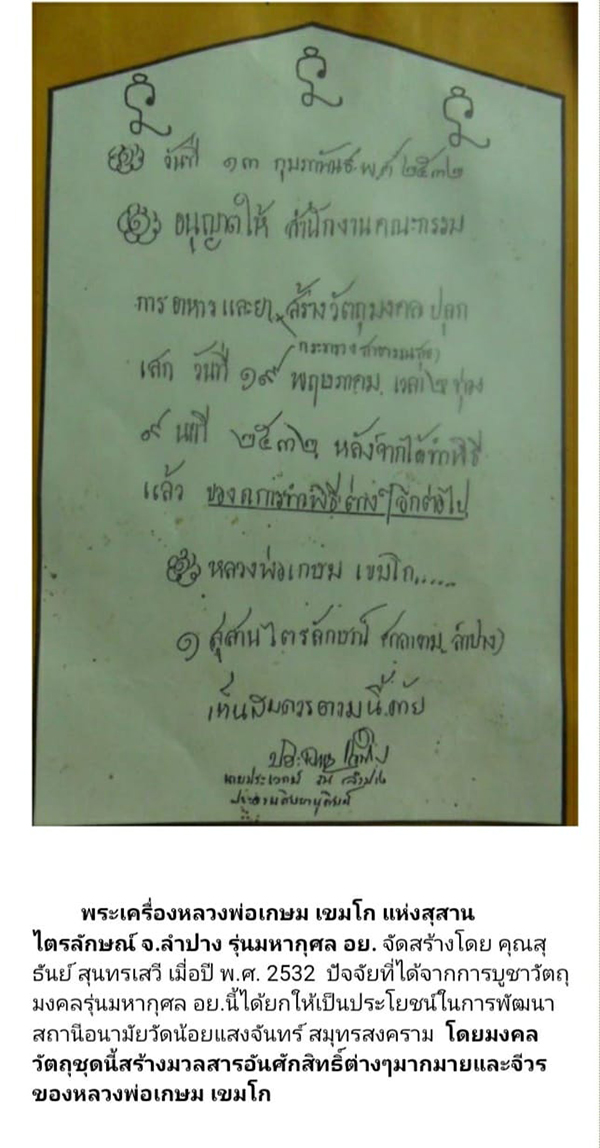 วันที่ ๑๓ กุมภาพันธ์ พ.ศ ๒๕๓๒
อนุญาตให้ สำนักงานคณะกรรม
การ อาหาร และยา สร้างวัตถุมงคล ปลุก
(กระทรวงสาธารณสุข)
เสก วันที่ ๑๙ พฤษภาคม
๙ นาที ๒๕๓๒ หลังจากได้ทำพิธี
แล้ว ของดการทำพิธีต่างๆอีกต่อไป
หลวงพ่อเกษม เขมโก.....
๑ สุสานไตรลักษณ์ ลำปาง)
เห็นสมควรตามนี้ด้วย
พระเครื่องหลวงพ่อเกษม เขมโก แห่งสุสาน
ไตรลักษณ์ จ.ลำปาง รุ่นมหากุศล อย. จัดสร้างโดย คุณสุ
ธันย์ สุนทรเสวี เมื่อปี พ.ศ. 2532 ปัจจัยที่ได้จากการบูชาวัตถุ
มงคลรุ่นมหากุศล อย.นี้ได้ยกให้เป็นประโยชน์ในการพัฒนา
สถานีอนามัยวัดน้อยแสงจันทร์ สมุทรสงคราม โดยมงคล
วัตถุชุดนี้สร้างมวลสารอันศักสิทธิ์ต่างๆมากมายและจีวร
ของหลวงพ่อเกษม เขมโก